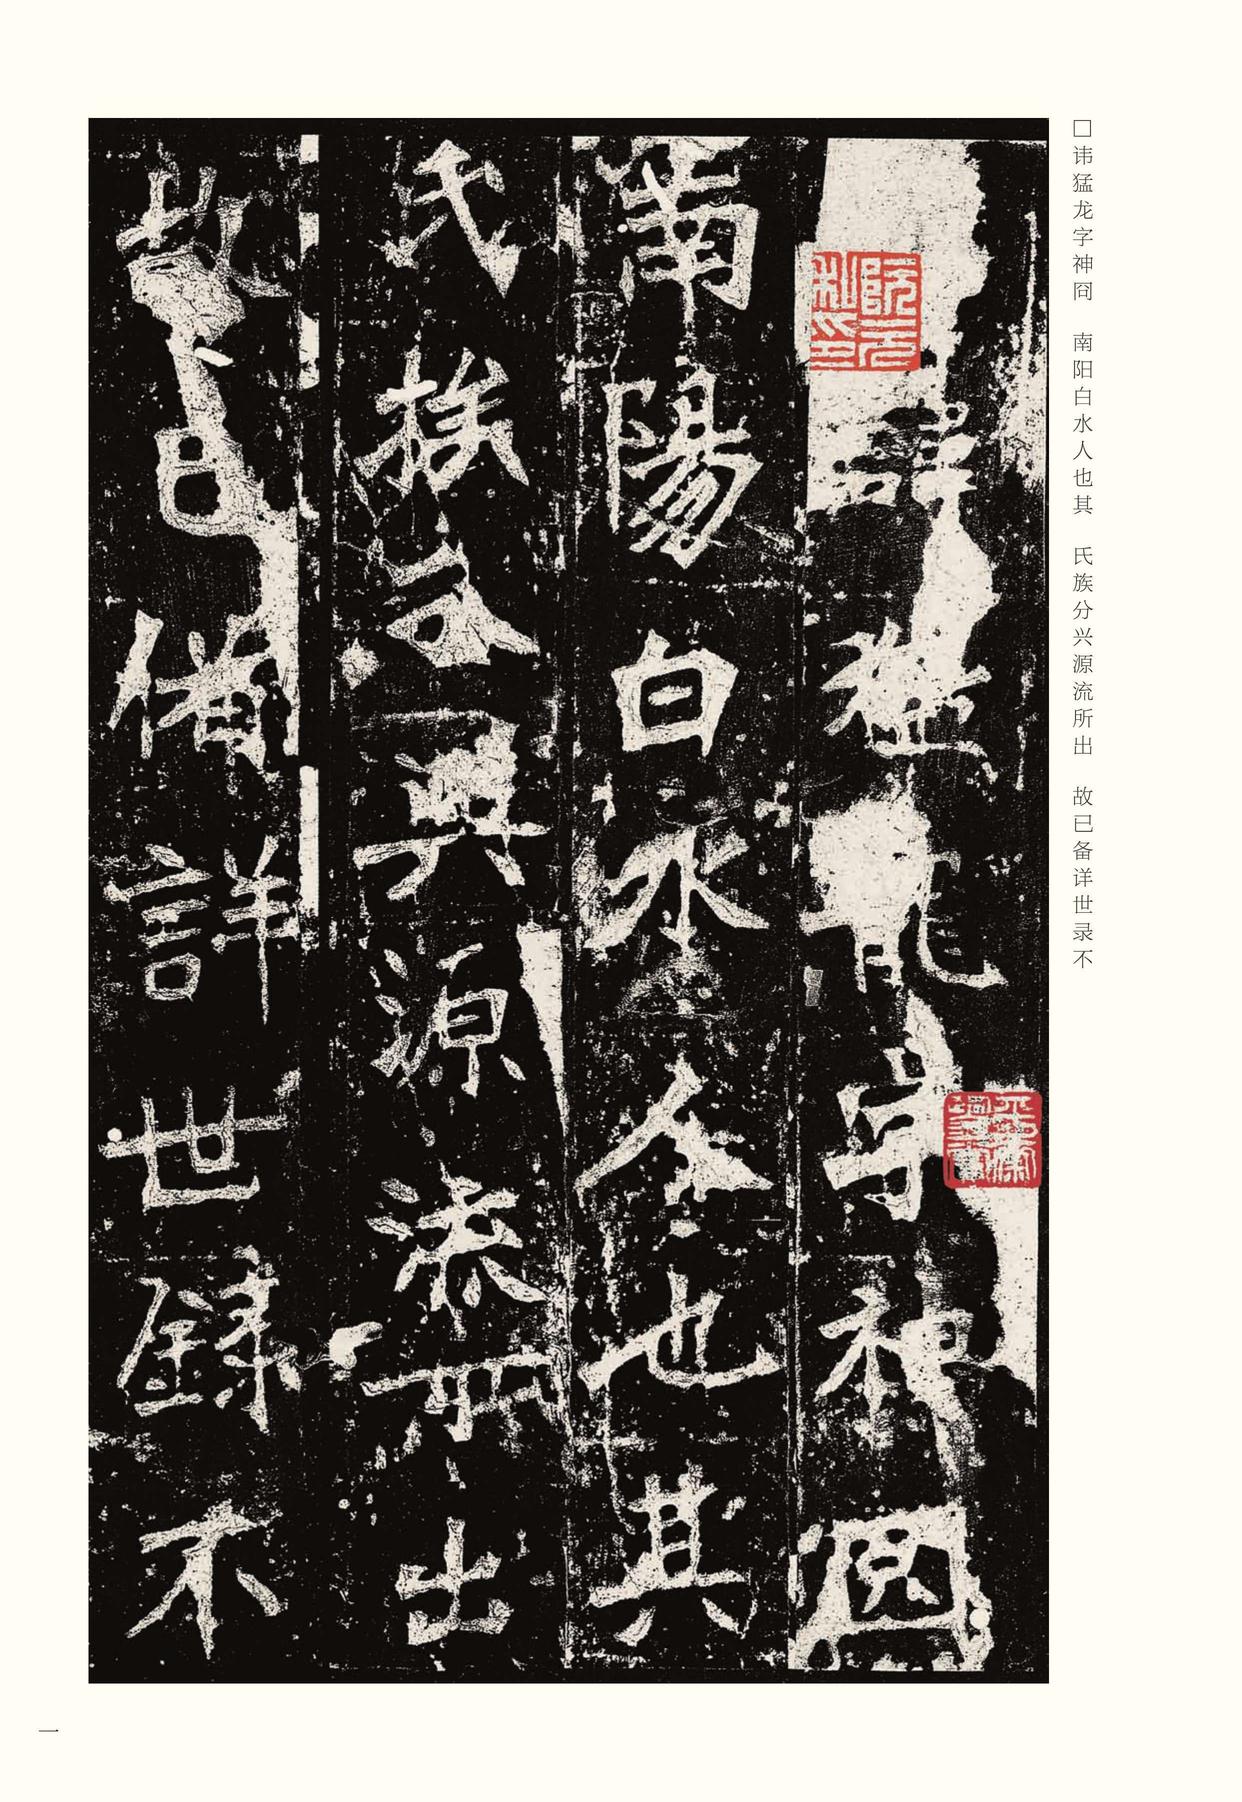 □讳猛龙字神冏　南阳白水人也其　氏族分兴源流所出　故已备详世录不
諱猛龍字神冏
南陽白水人也其
氏族分興源流所出
故已備詳世錄不
阮元私印
一